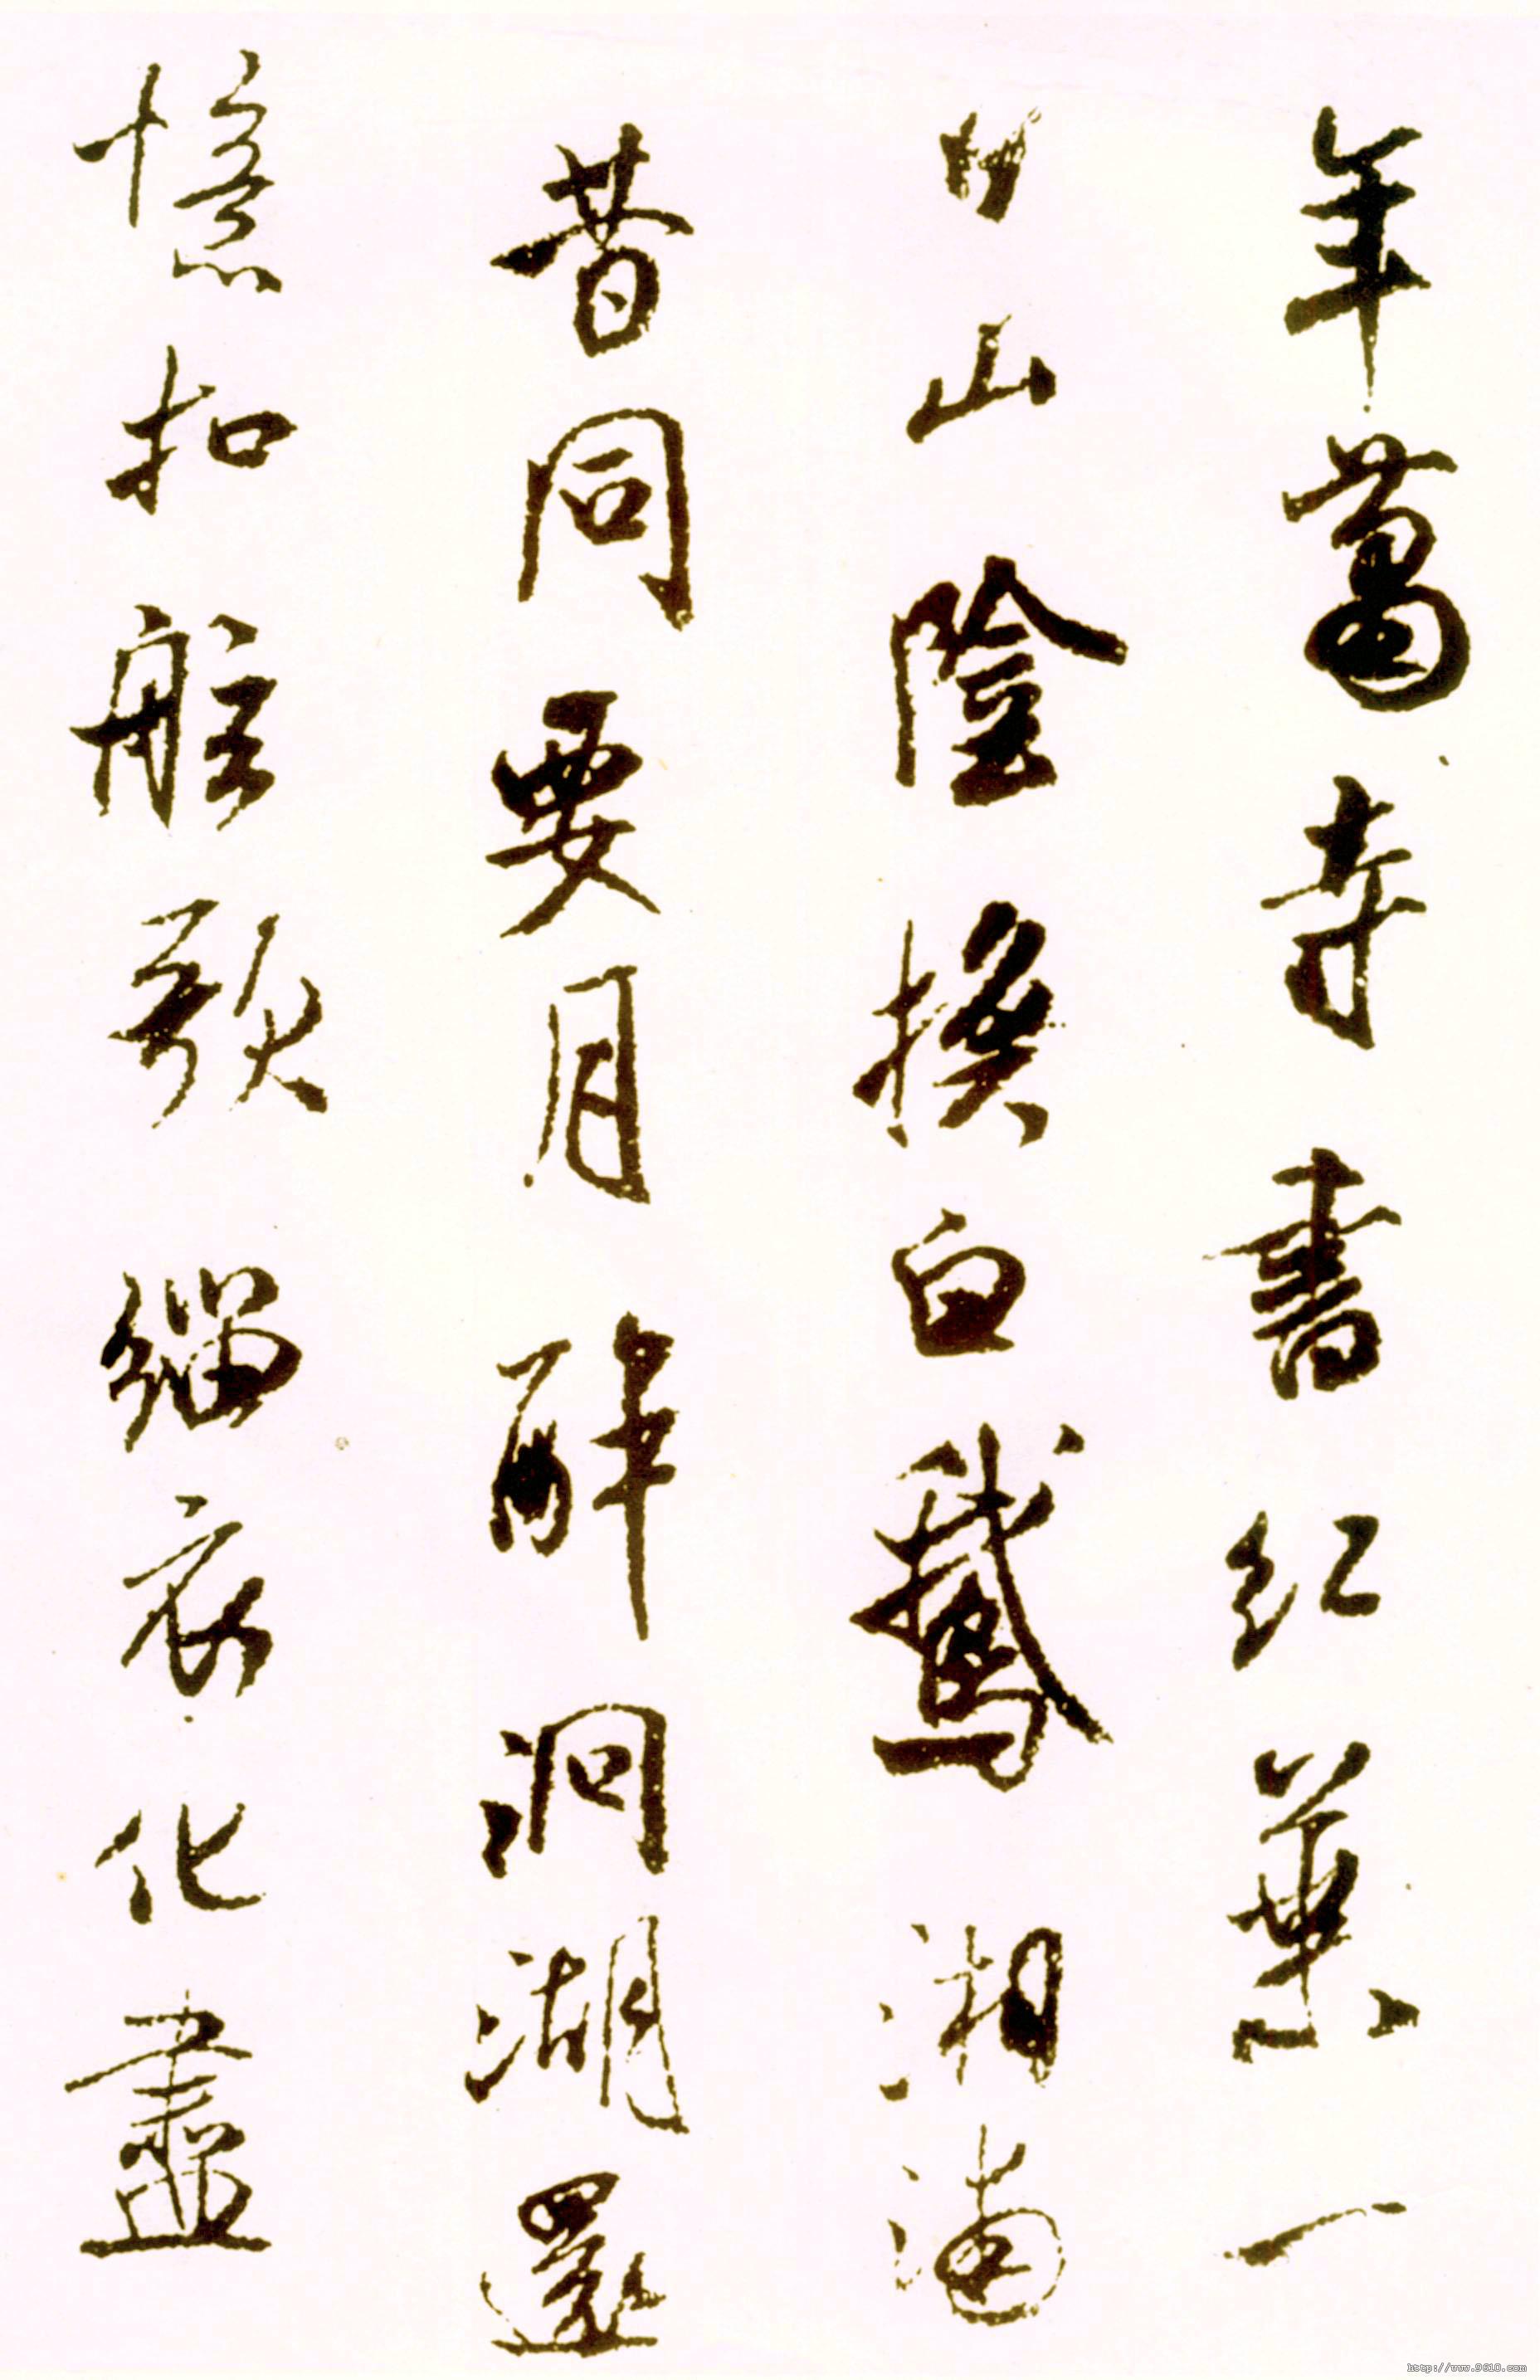 年蕭寺書紅葉一
日山陰換白鵝湘浦
昔同要月醉洞湖還
憶扣舷歌緇衣化盡
http://www.9610.com